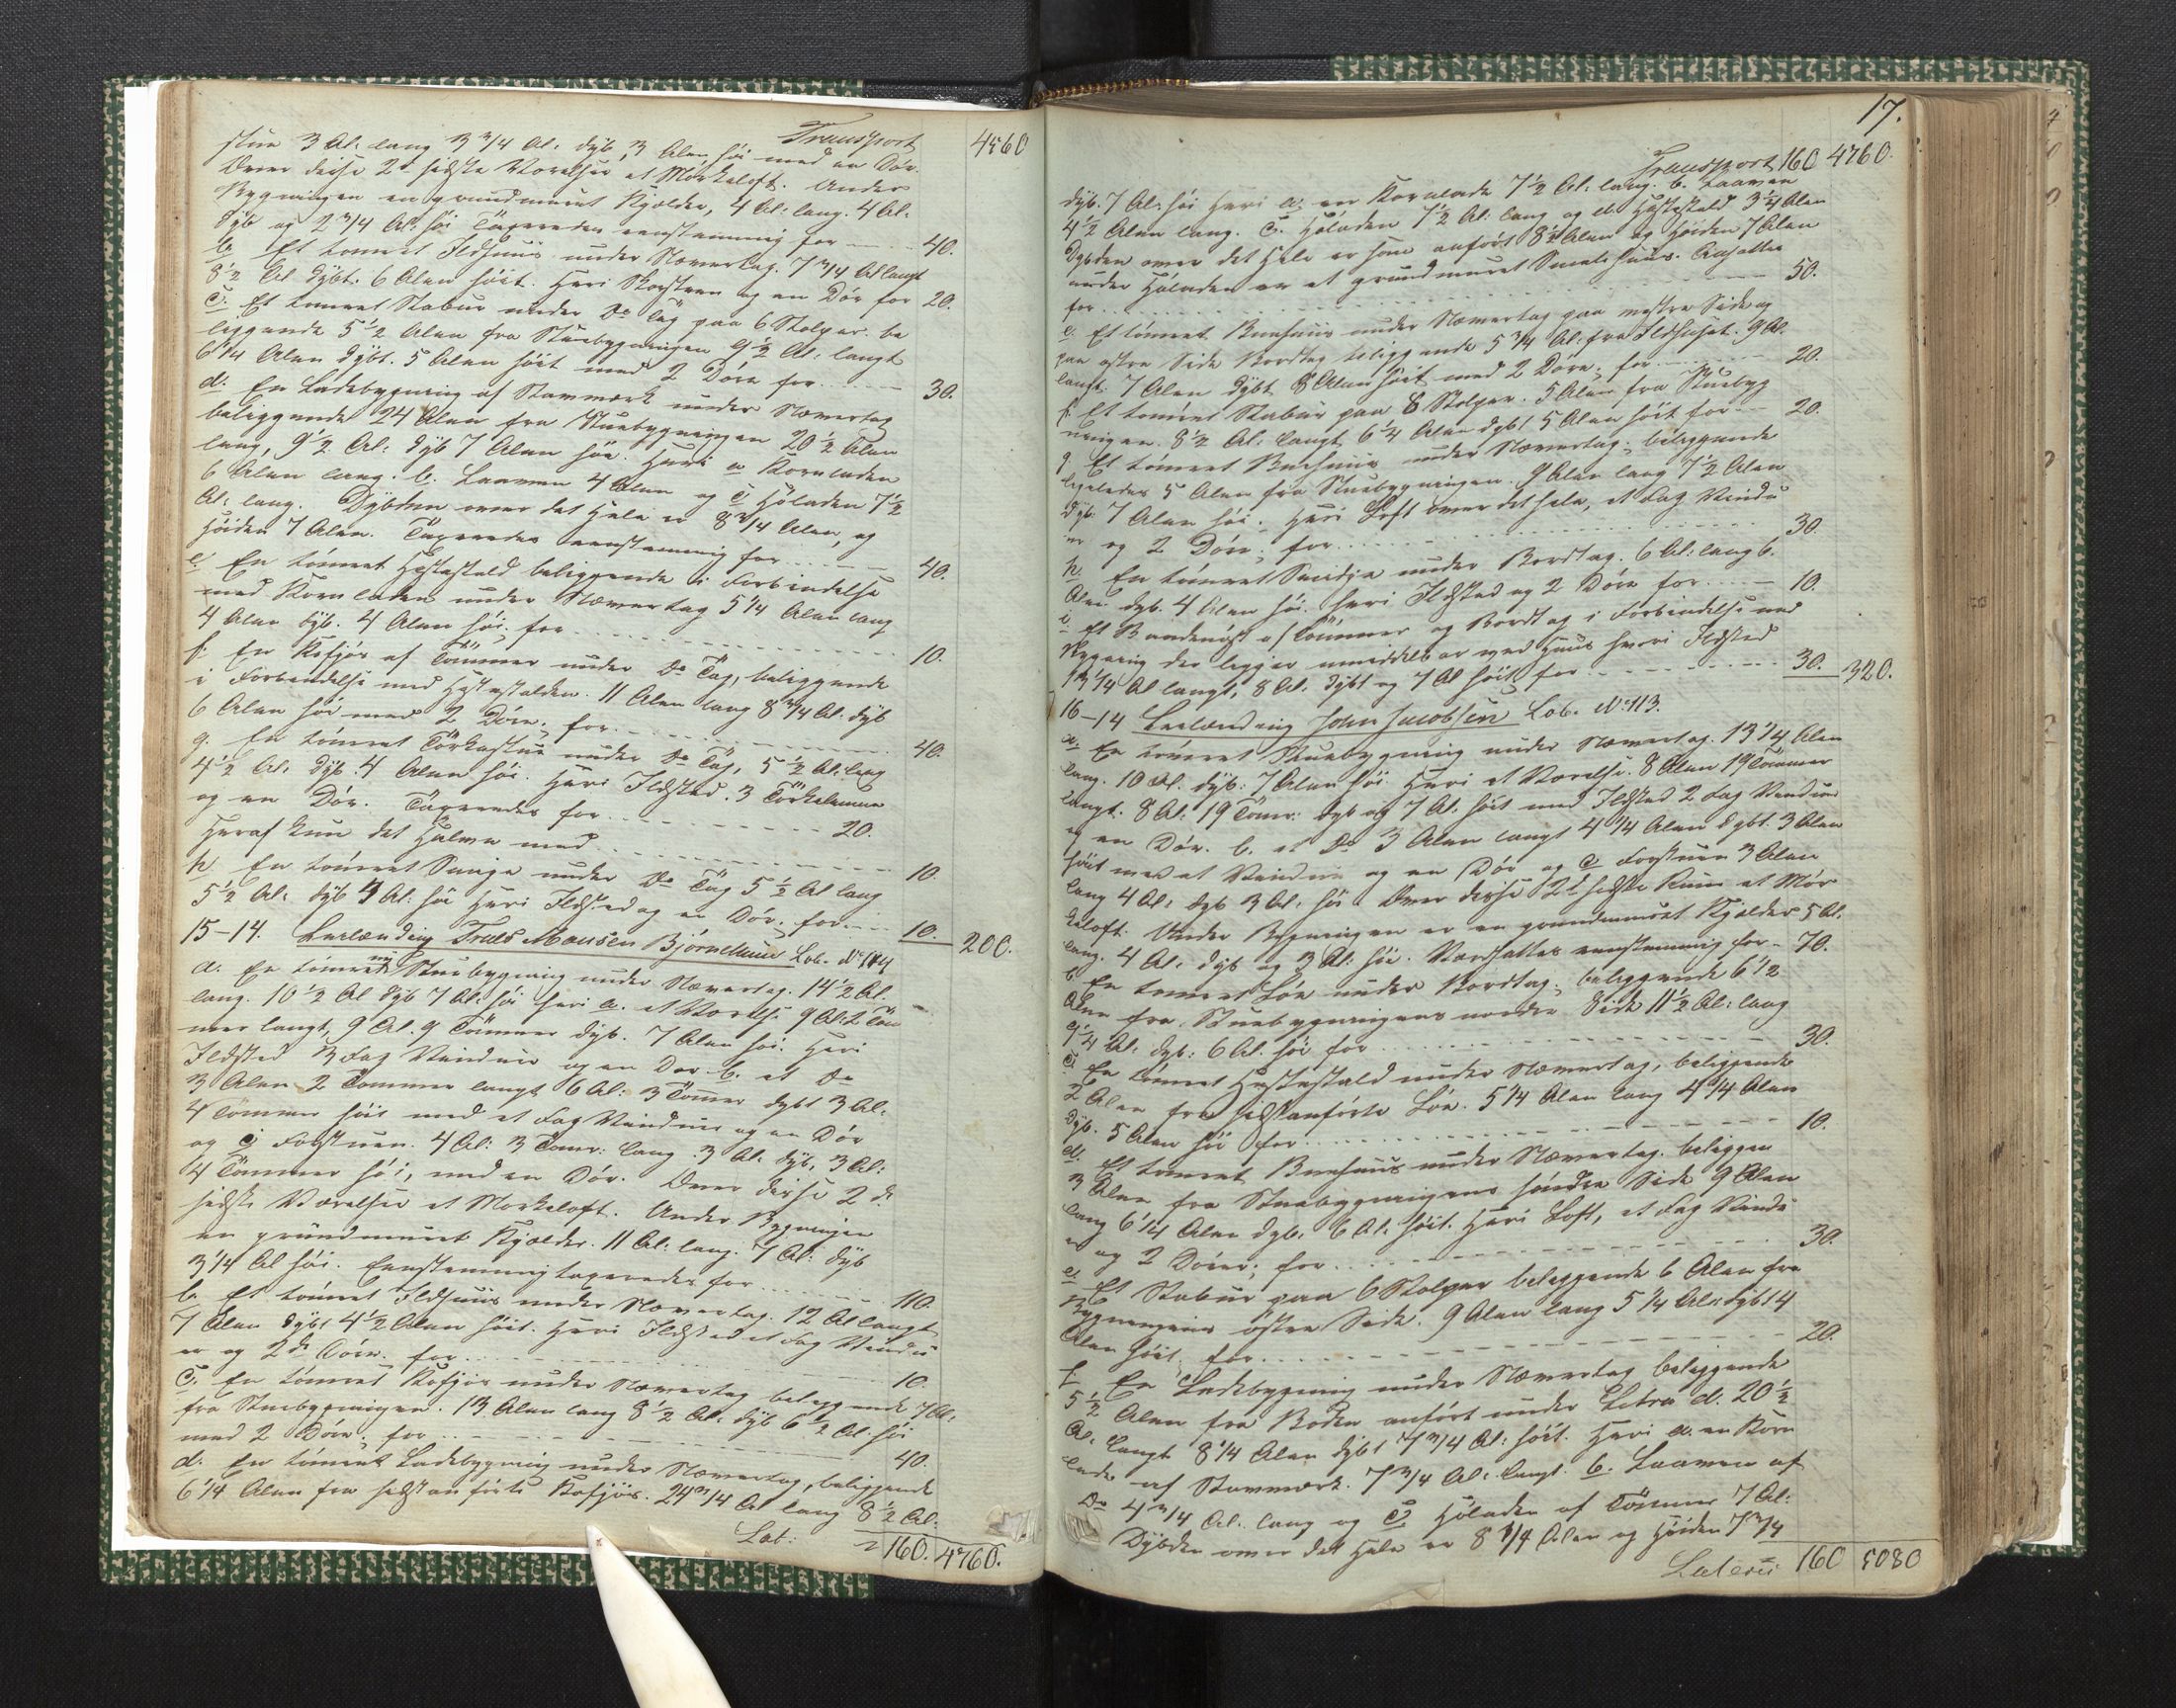 Transport 4560
stue 3 Al: lang 3 3/4 Al: dyb, 3 Alen høi med en Dör.
Over disse 2de sidste Værelser et Mörkeloft. Under
Bygningen en grundmuret Kjælder, 4 Al: lang. 4 Al.
dyb og 2 3/4 Al: høi Taxeredes eenstemmig for 40.
b. Et tömret Ildhuus under Nævertag. 7 3/4 Al langt
8 1/2 Al dybt. 6 Alen höit. Heri Skorsteen og en Dör for 20.
c. Et tömret Stabur under Do Tag paa 6 Stolper. be
liggende 5 1/2 Alen fra Stuebygningen 9 1/2 Al: langt
6 1/4 Alen dybt. 5 Alen höit med 2 Döre for 30.
d. En Ladebygning af Stavværk under Nævertag
beliggende 24 Alen fra Stuebygningen 20 1/2 Alen
lang, 9 1/2 Al: dyb 7 Alen höi. Heri a Kornladen
6 Alen lang. b. Laaven 4 Alen og c Höladen 7 1/2
Al: lang. Dybden over det Hele er 8 3/4 Alen, og
Höiden 7 Alen. Taxeredes eenstemmig for 40.
e. En tömret Hestestald beliggende i Forbindelse
med Kornladen under Nævertag 5 1/4 Alen lang
4 Alen dyb. 4 Alen höi, for 10.
f. En Kofjös af Tömmer under Do Tag, beliggende
i Forbindelse med Hestestalden. 11 Alen lang 8 3/4 Al: dyb
6 Alen höi med 2 Döre, for 40.
g. En tömret Törkestue under Do Tag, 5 1/2 Al: lang
4 1/2 Al: dyb. 4 Alen höi. Heri Ildsted. 3 Törkelemme
og en Dör. Taxeredes for 20.
Heraf kun det Halve med 10.
h En tömret Smije under Do Tag 5 1/2 Al lang
5 1/2 Al: dyb 4 Al: höi Heri Ildsted og en Dör, for 10. 200.
15-14. Leilænding Truls Monsen Björnetun Lob. No 114
a. En tömret ny Stuebygning under Nævertag. 14 1/2 Al.
lang. 10 1/2 Al dyb 7 Al: höi heri a. et Værelse 9 Al: 2 Töm
mer langt, 9 Al. 9 Tömmer dyb. 7 Alen höi. Heri
Ildsted 3 Fag Vinduer og en Dör b. et Do
3 Alen 2 Tommer langt 6 Al: 3 Tömer dybt 3 Al:
4 Tömmer höit med et Fag Vinduer og en Dör
og c Forstuen. 4 Al: 3 Tomr: lang. 3 Al: dyb, 3 Al:
4 Tömmer höi, med en Dör. Over disse 2de
sidste Værelser et Mörkeloft. Under Bygningen
en grundmuret Kjælder. 11 Al: lang. 7 Al: dyb
3 1/4 Al höi. Eenstemmig taxeredes for 110.
b. Et tömret Ildhuus under Nævertag. 12 Al langt
7 Alen dybt 4 1/2 Alen höit. Heri Ildsted et Fag Vindu
er og 2de Döre. for 10.
c. En tömret Kofjös under Nævertag beliggende 7 Al:
fra Stuebygningen. 13 Alen lang 8 1/2 Al: dyb 6 1/2 Al: höi
med 2 Döre, for 40.
d. En tömret Ladebygning under Nævertag, beliggende
6 1/4 Alen fra sidstanförte Kofjös. 24 3/4 Al lang 8 1/2 Al:
Lat: 160. 4760.
17.
Transport 160 4760.
dyb. 7 Al: höi Heri a: en Kornlade 7 1/2 Al: lang. b. Laaven
4 1/2 Alen lang. c. Höladen 7 1/2 Al: lang og d. Hestestald 3 1/4 Alen
Dybden over det Hele er som anfört 8 1/2 Alen og Höiden 7 Alen
under Höladen er et grundmuret Smalehuus. Ansattes
for 50.
e. Et tömret Buehuus under Nævertag paa vestre Side og
paa östre Side Bordtag beliggende 5 3/4 Al: fra Ildhuset. 9 Al.
langt. 7 Alen dybt 8 Alen höit med 2 Döre, for 20.
f. Et tömret Stabur paa 8 Stolper. 5 Alen fra Stuebyg
ningen. 8 1/2 Al: langt 6 1/4 Alen dybt 5 Alen höit for 20.
g Et tömret Buehuus under Nævertag, beliggende
ligeledes 5 Alen fra Stuebygningen. 9 Alen lang 7 1/2 Alen
dyb 7 Alen höi. Heri Loft over det hele, et Fag Vindu
er og 2 Döre, for 30
h En tömret Smidje under Bordtag. 6 Al: lang 6.
Alen dyb. 4 Alen höi. heri Ildsted og 2 Döre for 10.
i Et Baadenöst af Tömmer og Bordtag i Forbindelse med
Bygning der ligger umiddelbar ved Huus hvori Ildsted
13 1/4 Al langt, 8 Al: dybt og 7 Al höit for 30. 320.
16-14 Leilænding John Jacobsen Lob. No 113.
a. En tömret Stuebygning under Nævertag. 13 1/4 Alen
lang. 10 Al. dyb: 7 Alen höi Heri et Værelse. 8 Alen 19 Tömmer
langt. 8 Al: 19 Tomr: dyb og 7 Al. höit med Ildsted 2 Fag Vinduer
og en Dör. b. et Do 3 Alen langt 4 1/4 Alen dybt. 3 Alen
höit med et Vindue og en Dör og c Forstuen 3 Alen
lang 4 Al: dyb 3 Al: höi Over disse 2de sidste Rum et Mör
keloft. Under Bygningen er en grundmuret Kjælder 5 Al:
lang. 4 Al: dyb og 3 Al: höi. Værsattes eenstemmig for 70.
b En tömret Löe under Bordtag, beliggende 6 1/2
Alen fra Stuebygningens nordre Side 11 1/2 Al: lang
9 1/4 Al: dyb: 6 Al. höi for 30.
c En tömret Hestestald under Nævertag, beliggende
2 Alen fra sidstanförte Löe. 5 1/4 Alen lang 4 1/4 Alen
dyb. 5 Alen höi for 10.
d. Et tömret Buehuus under Nævertag. beliggen
3 Alen fra Stuebygningens söndre Side 9 Alen
lang 6 1/4 Alen dyb. 6 Al: höit. Heri Loft, et Fag Vindu
er og 2 Döre, for 30.
e. Et Stabur paa 6 Stolper beliggende 6 Alen fra
Bygningens östre Side. 9 Alen lang 5 1/4 Alen dybt 4
Alen höit for 20.
f. En Ladebygning under Nævertag beliggende
5 1/2 Alen fra Boden anfört under Litra d. 20 1/2
Al: langt 8 1/4 Alen dybt 7 3/4 Al: höit. Heri a. en Korn
lade af Stavværk. 7 3/4 Al: langt. b. Laaven af
Do 4 3/4 Al. lang og c Höladen af Tömmer 7 Al:
Dybden over det Hele er 8 1/4 Alen og Höiden 7 3/4
Lateris 160 5080